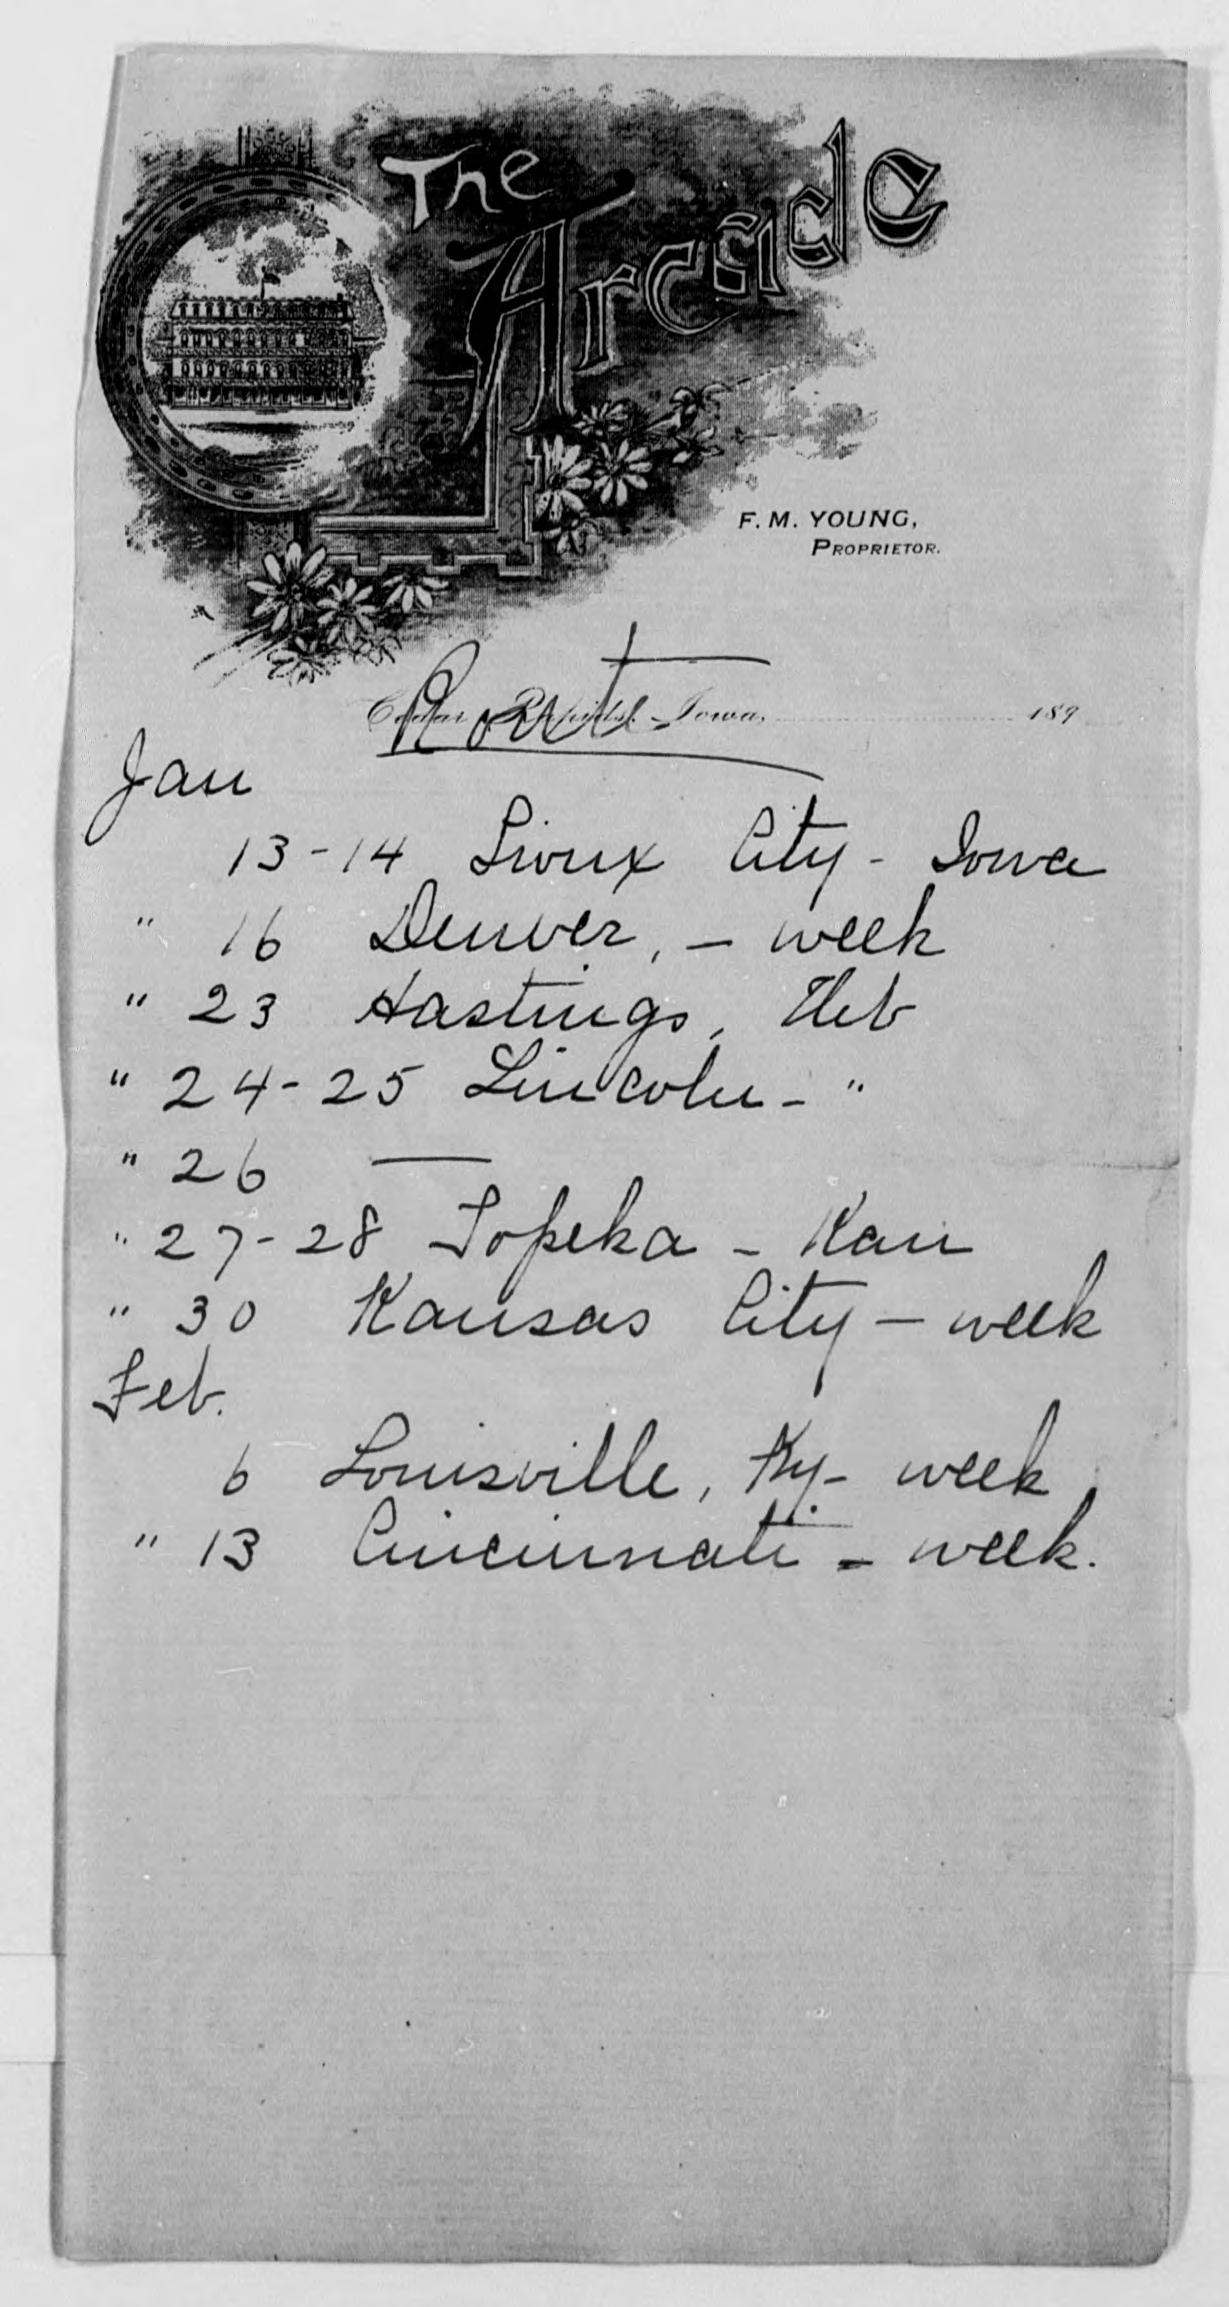 The Arcade
F. M. YOUNG,
PROPRIETOR.
Cedar Rapids, Iowa, 189
Route
Jan
13-14 Sioux City - Iowa
" 16 Denver, - week
" 23 Hastings, Neb
" 24-25 Lincoln - "
" 26 —
" 27-28 Topeka - Kan
" 30 Kansas City - week
Feb.
6 Louisville, Ky - week
" 13 Cincinnati - week.